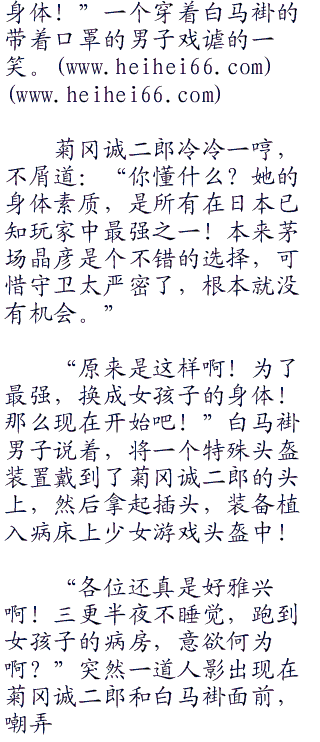 身体！”一个穿着白马褂的
带着口罩的男子戏谑的一
笑。(www.heihei66.com)
(www.heihei66.com)
菊冈诚二郎冷冷一哼，
不屑道：“你懂什么？她的
身体素质，是所有在日本已
知玩家中最强之一！本来茅
场晶彦是个不错的选择，可
惜守卫太严密了，根本就没
有机会。”
“原来是这样啊！为了
最强，换成女孩子的身体！
那么现在开始吧！”白马褂
男子说着，将一个特殊头盔
装置戴到了菊冈诚二郎的头
上，然后拿起插头，装备植
入病床上少女游戏头盔中！
“各位还真是好雅兴
啊！三更半夜不睡觉，跑到
女孩子的病房，意欲何为
啊？”突然一道人影出现在
菊冈诚二郎和白马褂面前，
嘲弄